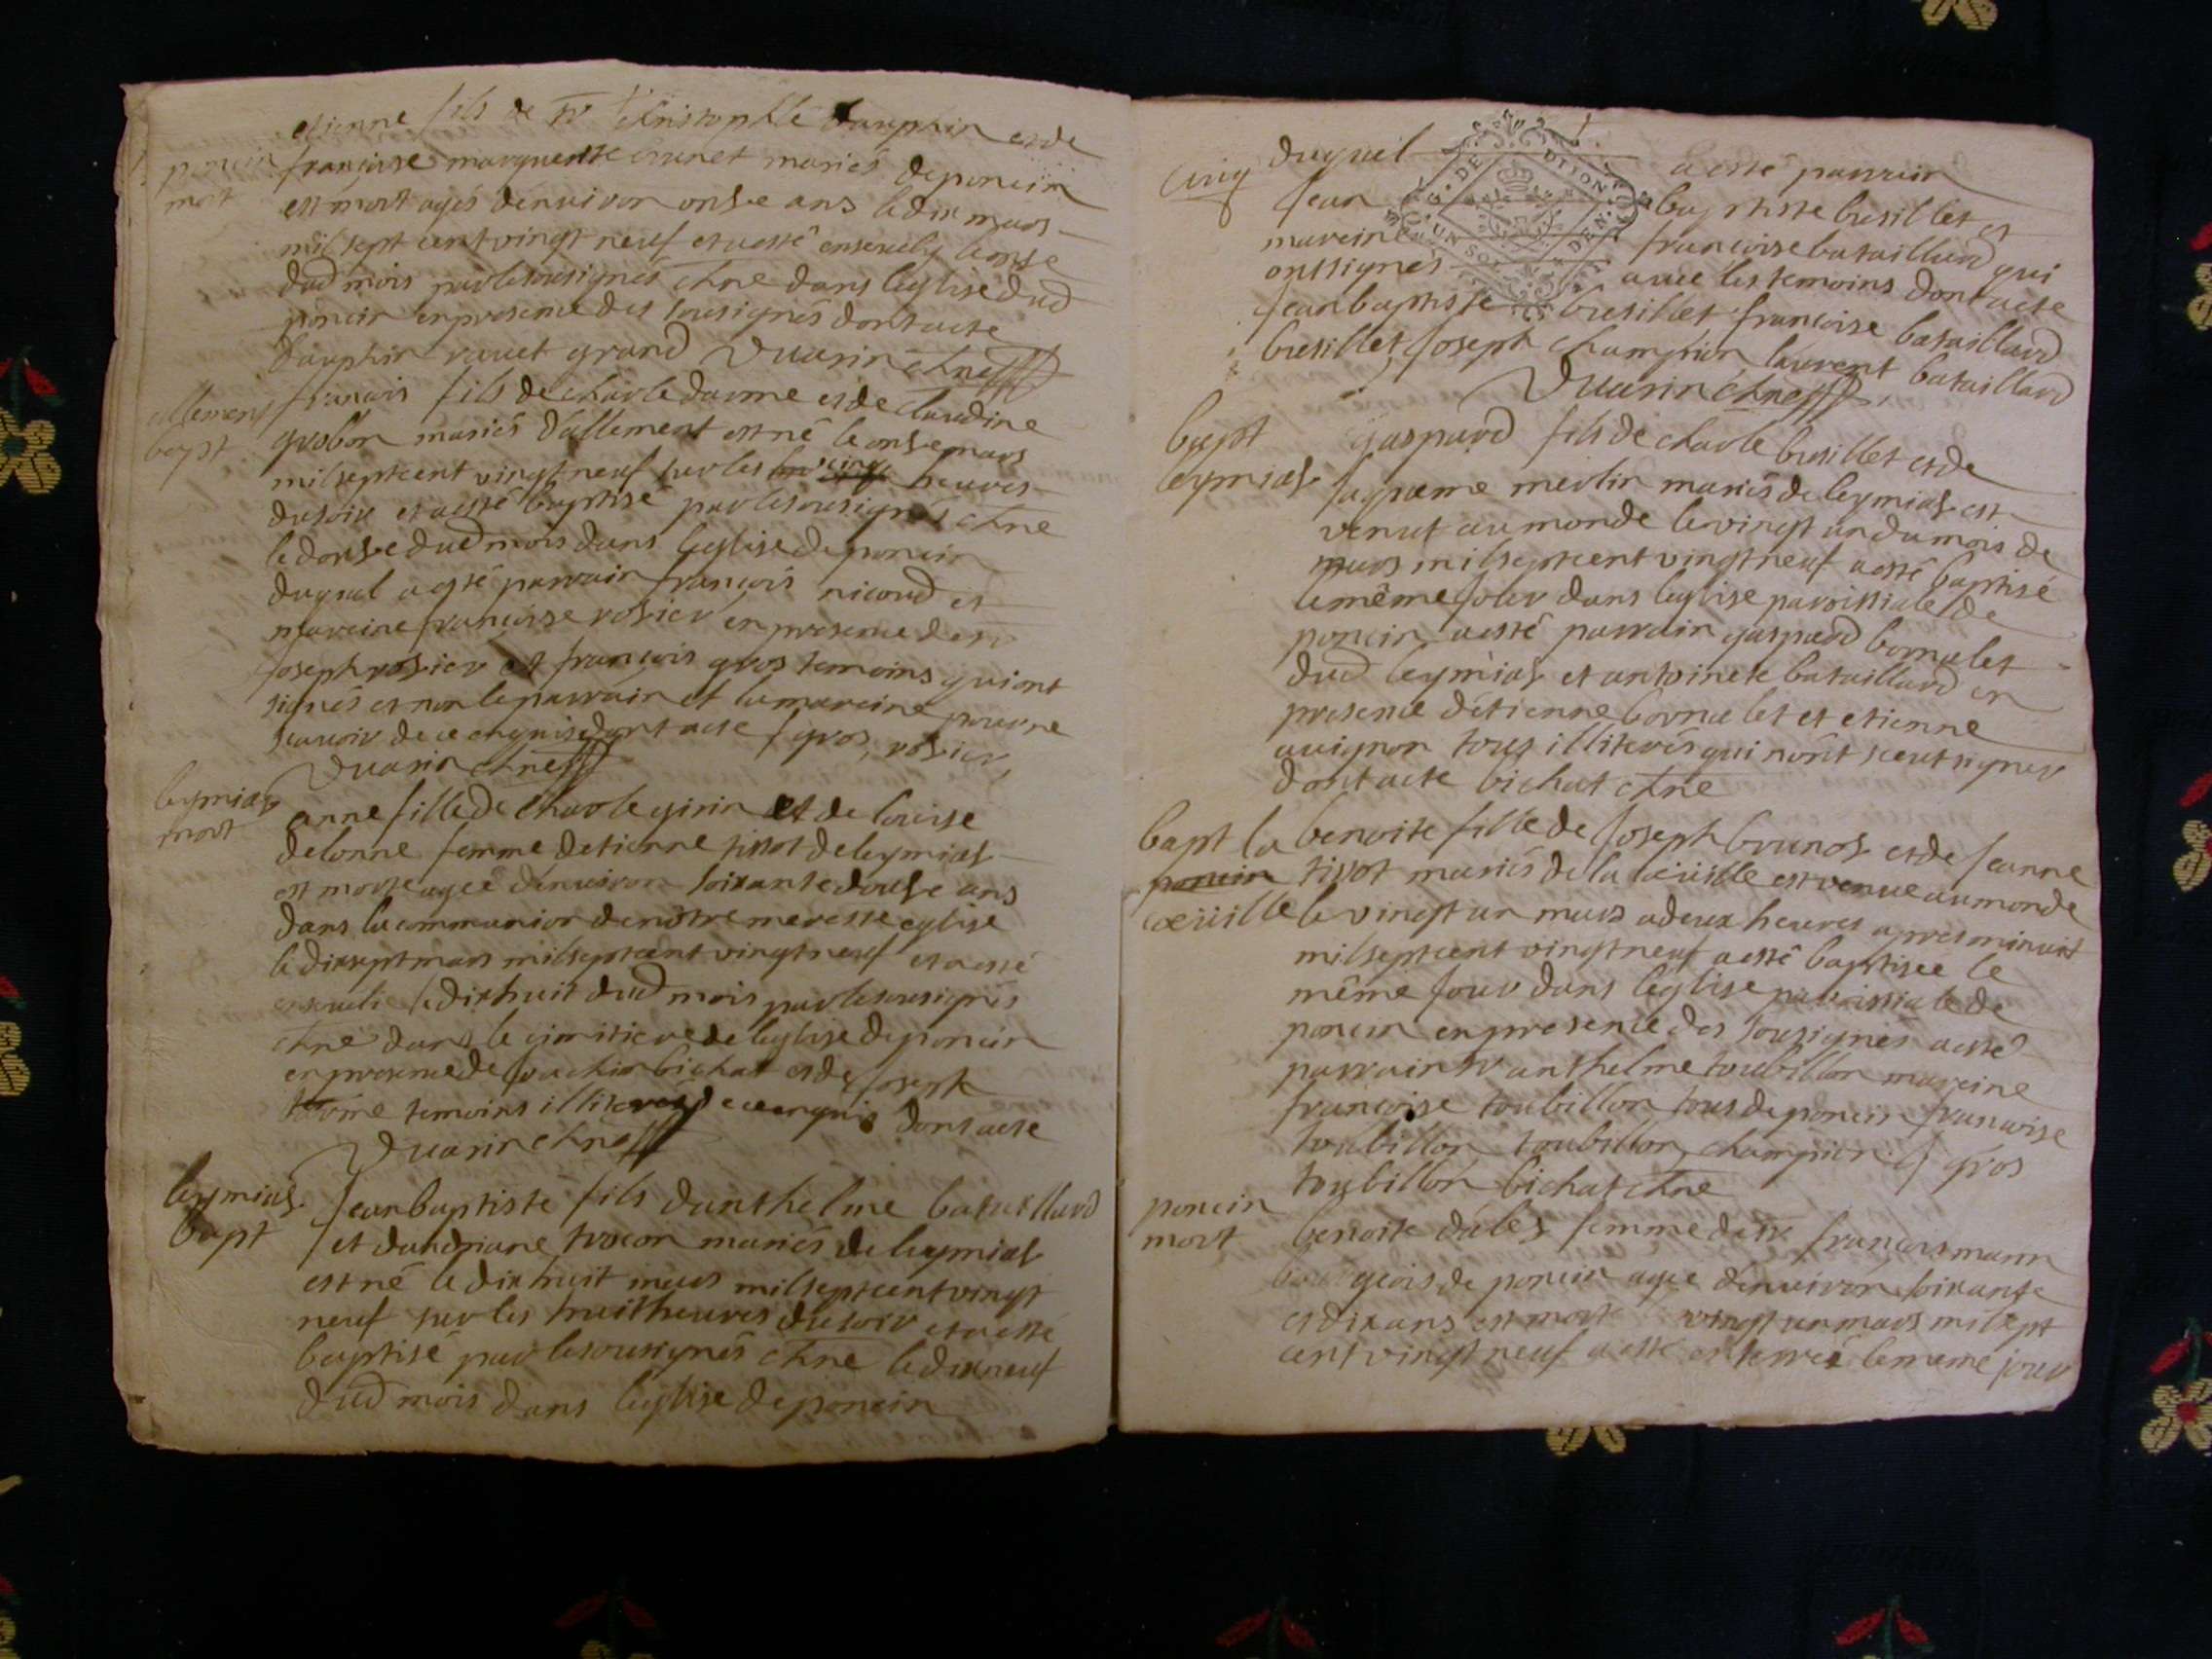 etienne fils de sr christophle dauphin et de
poncin françoise margueritte mariés de poncin
mort est mort agés denuiron onse ans le dix mars
mil sept cent vingt neuf et a esté enseuely le onse
dud mois par le sousignés chne dans leglise dud
poncin en presence des sousignés dont acte
dauphin rauet grand Vuarin chne
allement francois fils de charle darme et de claudine
bapt grobon mariés d'allement est né le onse mars
mil sept cent vingt neuf sur les cinq heures
du soir et a esté baptisé par le sousignés chne
le douse dud mois dans leglise de poncin
duquel a esté parrain françois nicoud et
mareine françoise rosier en presence de sr
joseph rosier et françois gros temoins qui ont
signés et non le parrain et la mareine pour ne
scauoir de ce enquis dont acte f gros, rosier,
Vuarin chne
leymias
mort anne fille de charle girin et de louise
delonne femme detienne tissot de leymias
est morte agée denuiron soixante douse ans
dans la communion de nôtre mere ste eglise
le dixsept mars mil sept cent vingt neuf et a esté
enseuelie le dixhuit dud mois par le sousignés
chne dans le cimitiere de leglise de poncin
en presence de joachin bichat et de joseph
temoins illiterés de ce enquis dont acte
Vuarin chne
leymias jean baptiste fils d'anthelme bataillard
bapt et dandriane trocon mariés de leymias
est né le dixhuit mars mil sept cent vingt
neuf sur les huit heures du soir et a esté
baptisé par le sousignés chne le dixneuf
dud mois dans leglise de poncin
cinq duquel a esté parrain
jean baptiste bresillet et
mareine françoise bataillard qui
ont signés auec les temoins dont acte
jean baptiste bresillet françoise bataillard
bresillet joseph champion laurent bataillard
Vuarin chne
bapt gaspard fils de charle bresillet et de
leymias jaqueme merlin mariés de leymias est
venut au monde le vingt un du mois de
mars mil sept cent vingt neuf a esté baptisé
le même jour dans leglise paroissiale de
poncin a esté parrain gaspard bornalet
dud leymias et antoinete bataillard en
presence d'étienne bornalet et etienne
auignon tous illiterés qui nônt sceut signer
dont acte bichat chne
bapt la benoite fille de joseph brunos et de jeanne
poncin tissot mariés de la cœüille est venue au monde
cœüille le vingt un mars a deux heures apres minuit
mil sept cent vingt neuf a esté baptisée le
même jour dans leglise paroissiale de
poncin en presence des sousignés a esté
parrain sr anthelme toubillon mareine
françoise toubillon tous de poncin françoise
toubillon toubillon, champion, f gros
toubillon bichat chne
poncin
mort benoite dales femme de sr françois mann
bourgeois de poncin agée denuiron soixante
et dix ans est morte vingt un mars mil sept
cent vingt neuf a esté enterrée le meme jour
DE DIONS
UN SOL DEN